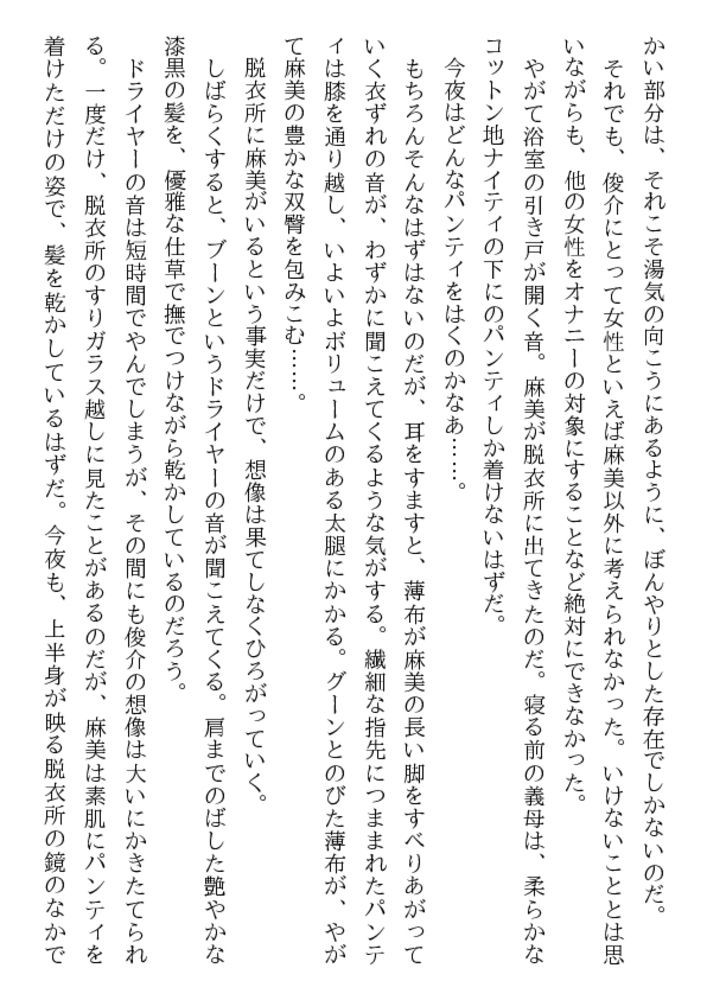 かい部分は、それこそ湯気の向こうにあるように、ぼんやりとした存在でしかないのだ。
それでも、俊介にとって女性といえば麻美以外に考えられなかった。いけないこととは思
いながらも、他の女性をオナニーの対象にすることなど絶対にできなかった。
やがて浴室の引き戸が開く音。麻美が脱衣所に出てきたのだ。寝る前の義母は、柔らかな
コットン地ナイティの下にのパンティしか着けないはずだ。
今夜はどんなパンティをはくのかなあ……。
もちろんそんなはずはないのだが、耳をすますと、薄布が麻美の長い脚をすべりあがって
いく衣ずれの音が、わずかに聞こえてくるような気がする。繊細な指先につままれたパンテ
ィは膝を通り越し、いよいよボリュームのある太腿にかかる。グーンとのびた薄布が、やが
て麻美の豊かな双臀を包みこむ……。
脱衣所に麻美がいるという事実だけで、想像は果てしなくひろがっていく。
しばらくすると、ブーンというドライヤーの音が聞こえてくる。肩までのばした艶やかな
漆黒の髪を、優雅な仕草で撫でつけながら乾かしているのだろう。
ドライヤーの音は短時間でやんでしまうが、その間にも俊介の想像は大いにかきたてられ
る。一度だけ、脱衣所のすりガラス越しに見たことがあるのだが、麻美は素肌にパンティを
着けただけの姿で、髪を乾かしているはずだ。今夜も、上半身が映る脱衣所の鏡のなかで